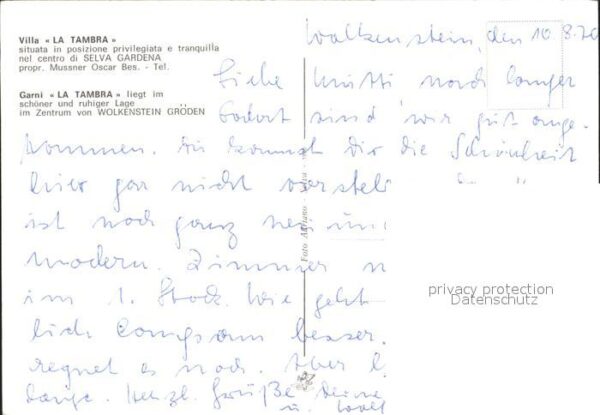 Villa « LA TAMBRA »
situata in posizione privilegiata e tranquilla
nel centro di SELVA GARDENA
propr. Mussner Oscar Bes. - Tel.
Garni « LA TAMBRA » liegt im
schöner und ruhiger Lage
im Zentrum von WOLKENSTEIN GRÖDEN
Wolkenstein, den 10.8.70
Liebe Mutti nach langer
sind wir gut ange-
kommen. Du kannst dir die Schönheit
hier gar nicht vorstel
ist noch ganz neu un
modern. Zimmer
im 1. Stock. Wie geht
lich besser.
regnet es noch. Aber
Herzl. Grüße deine
u. Wolf
Foto
privacy protection
Datenschutz